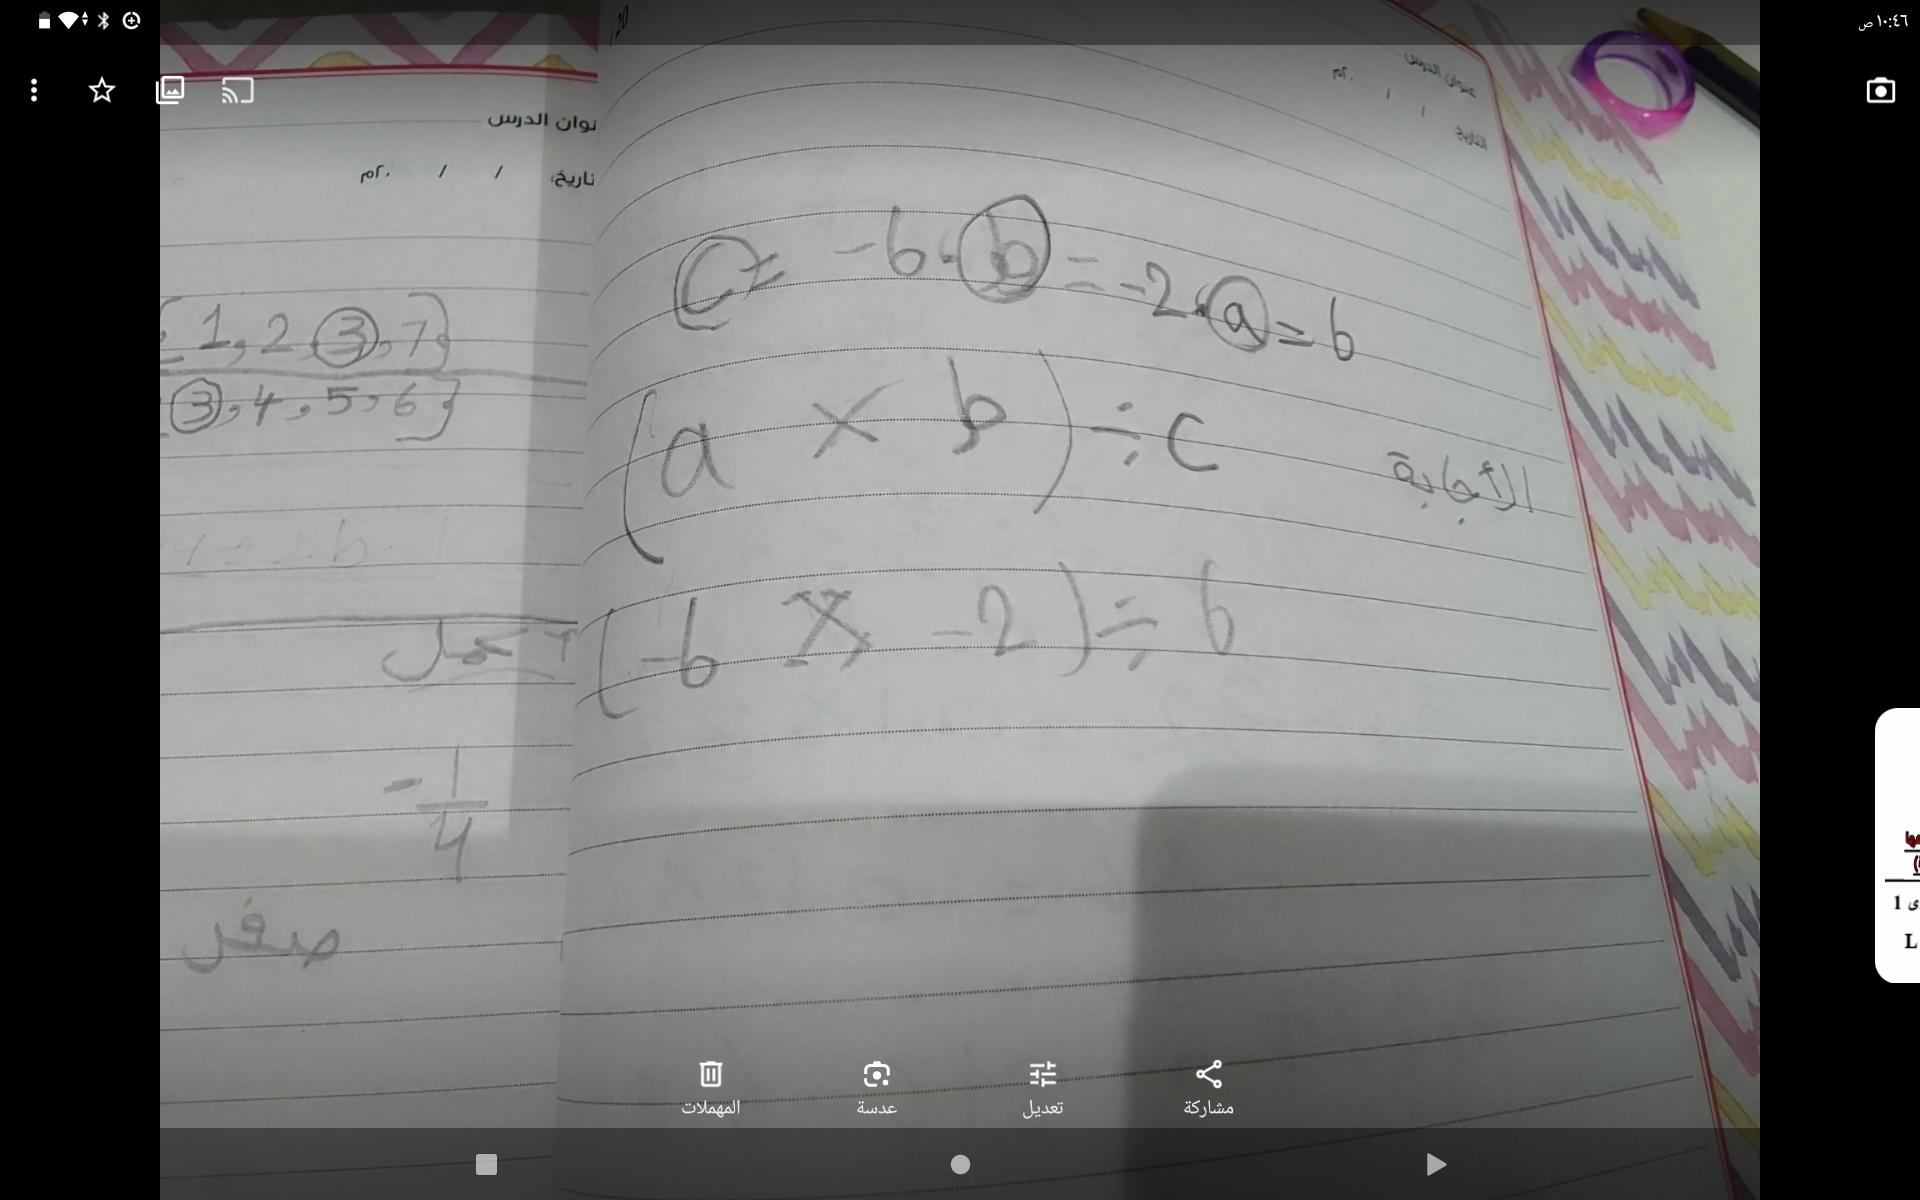 ١٠:٤٦ ص
عنوان الدرس
/ / ٢٠م
التاريخ
نوان الدرس
تاريخ: / / ٢٠م
1, 2, 3, 7}
3, 4, 5, 6}
صفر
-1/4
C = -6 . b = -2 . a = 6
(a × b) ÷ c
الأجابة
(-6 × -2) ÷ 6
المهملات
عدسة
تعديل
مشاركة
1
L